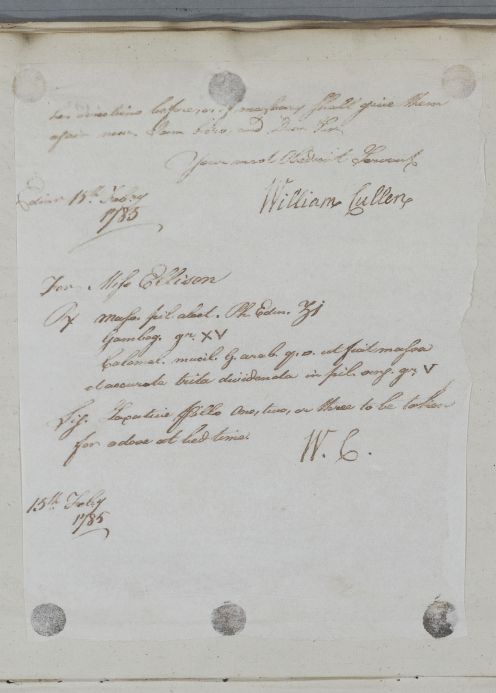 her directions before or if necessary shall give them
again now. I am Sir and Dear Sir
Your most Obedient Servant
William Cullen
Edinr 15th Feby
1785
For Miss Ellison
℞ Massæ pil. aloet. Ph. Edin. ʒj
Gambog. gr. XV
Calomel. mucil. G. arab. q. s. ut fiat massa
et accurate trita dividenda in pil. sing. gr. V
Sig. Laxative Pills one, two, or three to be taken
for a dose at bed time.
W. C.
15th Feby
1785